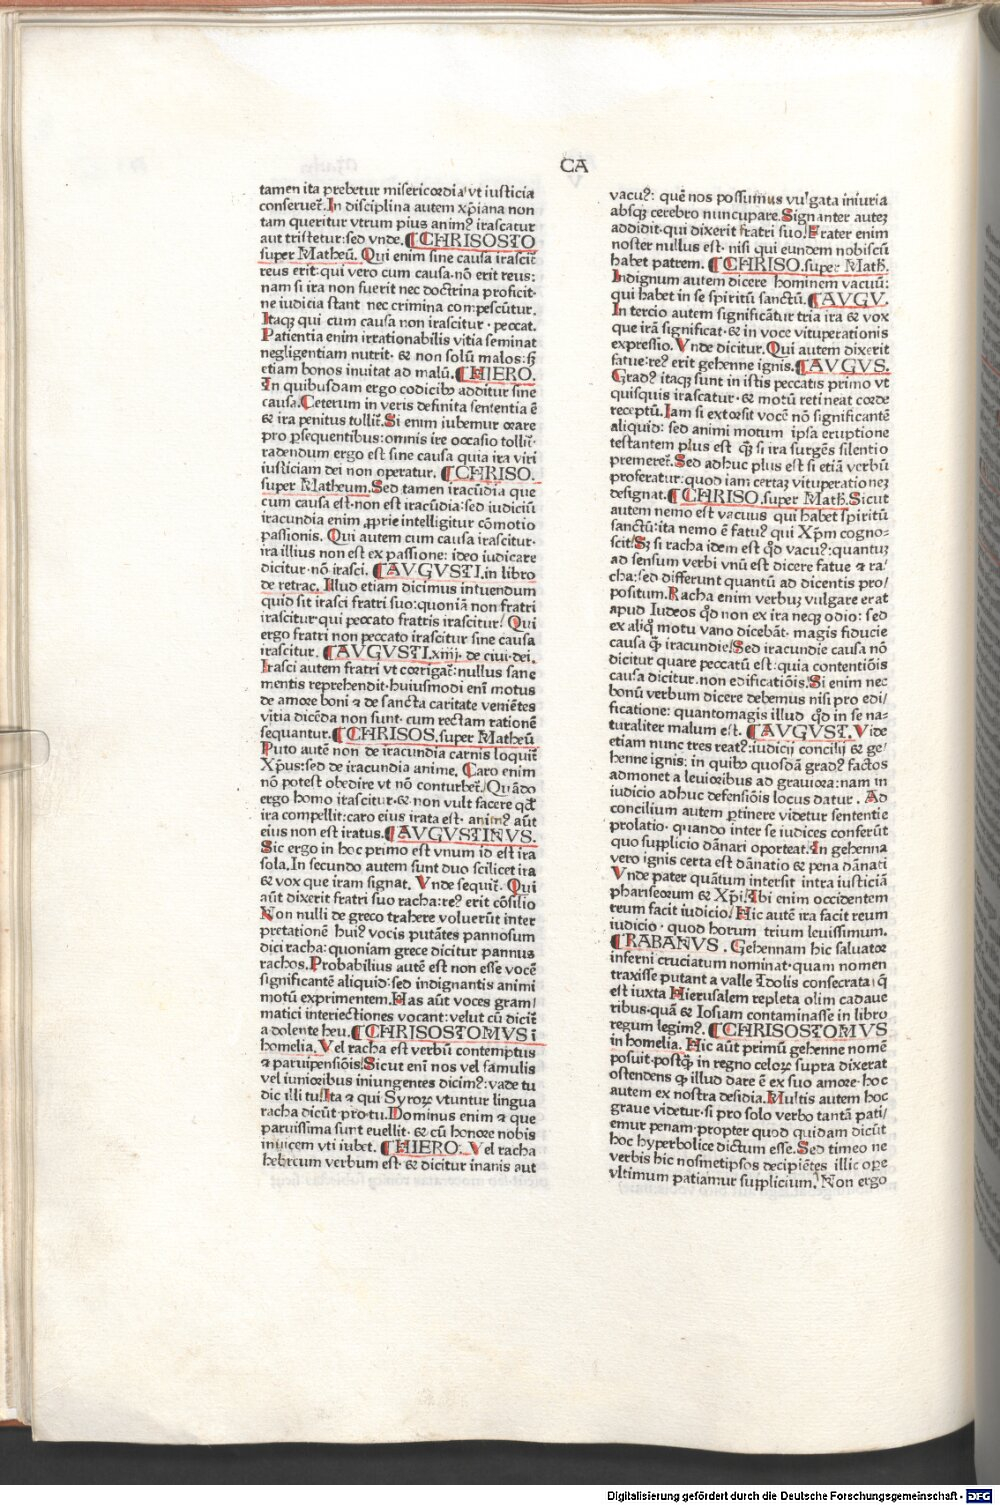 CA
tamen ita prebetur misericordia vt iusticia
conseruet̃. In disciplina autem xp̃iana non
tam queritur vtrum pius animꝰ irascatur
aut tristetur: sed vnde. ¶CHRISOSTO
super Matheū. Qui enim sine causa irascit̃
reus erit: qui vero cum causa· nō erit reus:
nam si ira non fuerit nec doctrina proficit·
ne iudicia stant nec crimina compescūtur.
Itaqꝫ qui cum causa non irascitur · peccat.
Patientia enim irrationabilis vitia seminat
negligentiam nutrit· & non solū malos: sꝫ
etiam bonos inuitat ad malū. ¶HIERO.
In quibusdam ergo codicibꝰ additur sine
causa. Ceterum in veris definita sententia ē
& ira penitus tollit̃. Si enim iubemur orare
pro ꝑsequentibus: omnis ire occasio tollit̃·
radendum ergo est sine causa quia ira viri
iusticiam dei non operatur. ¶CHRISO.
super Matheum. Sed tamen iracūdia que
cum causa est· non est iracūdia: sed iudiciū
iracundia enim ꝓprie intelligitur cōmotio
passionis. Qui autem cum causa irascitur·
ira illius non est ex passione: ideo iudicare
dicitur· nō irasci. ¶AVGVSTI. in libro
de retrac. Illud etiam dicimus intuendum
quid sit irasci fratri suo: quoniā non fratri
irascitur qui peccato fratris irascitur/ Qui
ergo fratri non peccato irascitur sine causa
irascitur. ¶AVGVSTI. xiiij. de ciui· dei.
Irasci autem fratri vt corrigat̃: nullus sane
mentis reprehendit· huiusmodi eni motus
de amore boni ⁊ de sancta caritate veniētes
vitia dicēda non sunt· cum rectam rationē
sequantur. ¶CHRISOS. super Matheū
Puto autē non de iracundia carnis loquit̃
Xp̃us: sed de iracundia anime. Caro enim
nō potest obedire vt nō conturbet̃/ Quādo
ergo homo irascitur· & non vult facere qd̃
ira compellit: caro eius irata est· animꝰ aūt
eius non est iratus. ¶AVGVSTINVS.
Sic ergo in hoc primo est vnum id est ira
sola. In secundo autem sunt duo scilicet ira
& vox que iram signat. Vnde sequit̃. Qui
aūt dixerit fratri suo racha: reꝰ erit cōsilio
Non nulli de greco trahere voluerūt inter
pretationē huiꝰ vocis putātes pannosum
dici racha: quoniam grece dicitur pannus
rachos. Probabilius autē est non esse vocē
significantē aliquid: sed indignantis animi
motū exprimentem. Has aūt voces gram/
matici interiectiones vocant: velut cū dicit̃
a dolente heu. ¶CHRISOSTOMVS ī
homelia. Vel racha est verbū contemptus
⁊ paruipensiōis/ Sicut eni nos vel famulis
vel iunioribus iniungentes dicimꝰ: vade tu
dic illi tu/ Ita ⁊ qui Syroꝝ vtuntur lingua
racha dicūt· pro· tu. Dominus enim ⁊ que
paruissima sunt euellit· & cū honore nobis
inuicem vti iubet. ¶HIERO. Vel racha
hebreum verbum est· & dicitur inanis aut
vacuꝰ: quē nos possumus vulgata iniuria
absqꝫ cerebro nuncupare. Signanter autez
addidit· qui dixerit fratri suo/ Frater enim
noster nullus est· nisi qui eundem nobiscū
habet patrem. ¶CHRISO. super Math̃.
Indignum autem dicere hominem vacuū:
qui habet in se spiritū sanctū. ¶AVGV.
In tercio autem significātur tria ira & vox
que irā significat· & in voce vituperationis
expressio. Vnde dicitur. Qui autem dixerit
fatue: reꝰ erit gehenne ignis. ¶AVGVS.
Gradꝰ itaqꝫ sunt in istis peccatis primo vt
quisquis irascatur· & motū retineat corde
receptū. Iam si extorsit vocē nō significantē
aliquid: sed animi motum ipsa eruptione
testantem plus est q̃ꝫ si ira surgēs silentio
premeret̃. Sed adhuc plus est si etiā verbū
proferatur: quod iam certaz vituperationez
designat. ¶CHRISO. super Math̃. Sicut
autem nemo est vacuus qui habet spiritū
sanctū: ita nemo ē fatuꝰ qui Xp̃m cogno-
scit/ Sꝫ si racha idem est qd̃ vacuꝰ: quantuz
ad sensum verbi vnū est dicere fatue ⁊ ra/
cha: sed differunt quantū ad dicentis pro/
positum. Racha enim verbuz vulgare erat
apud Iudeos qd̃ non ex ira neqꝫ odio: sed
ex aliq̃ motu vano dicebāt· magis fiducie
causa q̃ꝫ iracundie/ Sed iracundie causa nō
dicitur quare peccatū est: quia contentiōis
causa dicitur· non edificatiōis/ Si enim nec
bonū verbum dicere debemus nisi pro edi/
ficatione: quantomagis illud qd̃ in se na-
turaliter malum est. ¶AVGVST. Vide
etiam nunc tres reatꝰ: iudicij concilij & ge/
henne ignis: in quibꝰ quosdā gradꝰ factos
admonet a leuioribus ad grauiora: nam in
iudicio adhuc defensiōis locus datur. Ad
concilium autem ꝑtinere videtur sententie
prolatio· quando inter se iudices conferūt
quo supplicio dānari oporteat. In gehenna
vero ignis certa est dānatio & pena dānati
Vnde pater quātum intersit intra iusticiā
phariseorum & Xp̃i/ Ibi enim occidentem
reum facit iudicio/ Hic autē ira facit reum
iudicio· quod horum trium leuissimum.
¶RABANVS. Gehennam hic saluator
inferni cruciatum nominat· quam nomen
traxisse putant a valle Idolis consecrata· q̄
est iuxta Hierusalem repleta olim cadaue
ribus· quā & Iosiam contaminasse in libro
regum legimꝰ. ¶CHRISOSTOMVS
in homelia. Hic aūt primū gehenne nomē
posuit· postq̃ꝫ in regno celoꝝ supra dixerat
ostendens ꝙ illud dare ē ex suo amore· hoc
autem ex nostra desidia. Multis autem hoc
graue videtur· si pro solo verbo tantā pati/
emur penam· propter quod quidam dicūt
hoc hyperbolice dictum esse. Sed timeo ne
verbis hic nosmetipsos decipiētes illic ope
vltimum patiamur supplicium. Non ergo
Digitalisierung gefördert durch die Deutsche Forschungsgemeinschaft - DFG